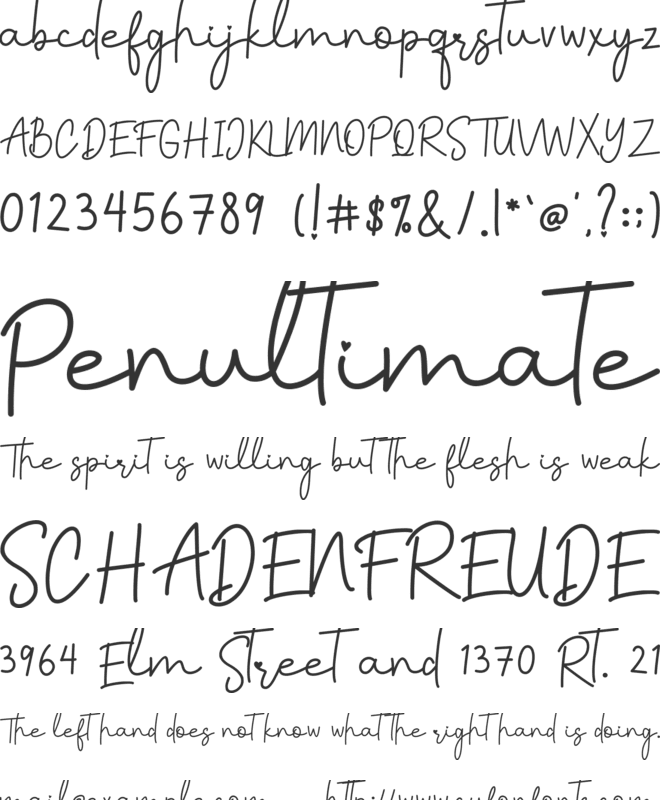 abcdefghijklmnopqrstuvwxyz
ABCDEFGHIJKLMNOPQRSTUVWXYZ
0123456789 (!#$%&/.|*`@',?:;)
Penultimate
The spirit is willing but the flesh is weak
SCHADENFREUDE
3964 Elm Street and 1370 Rt. 21
The left hand does not know what the right hand is doing.